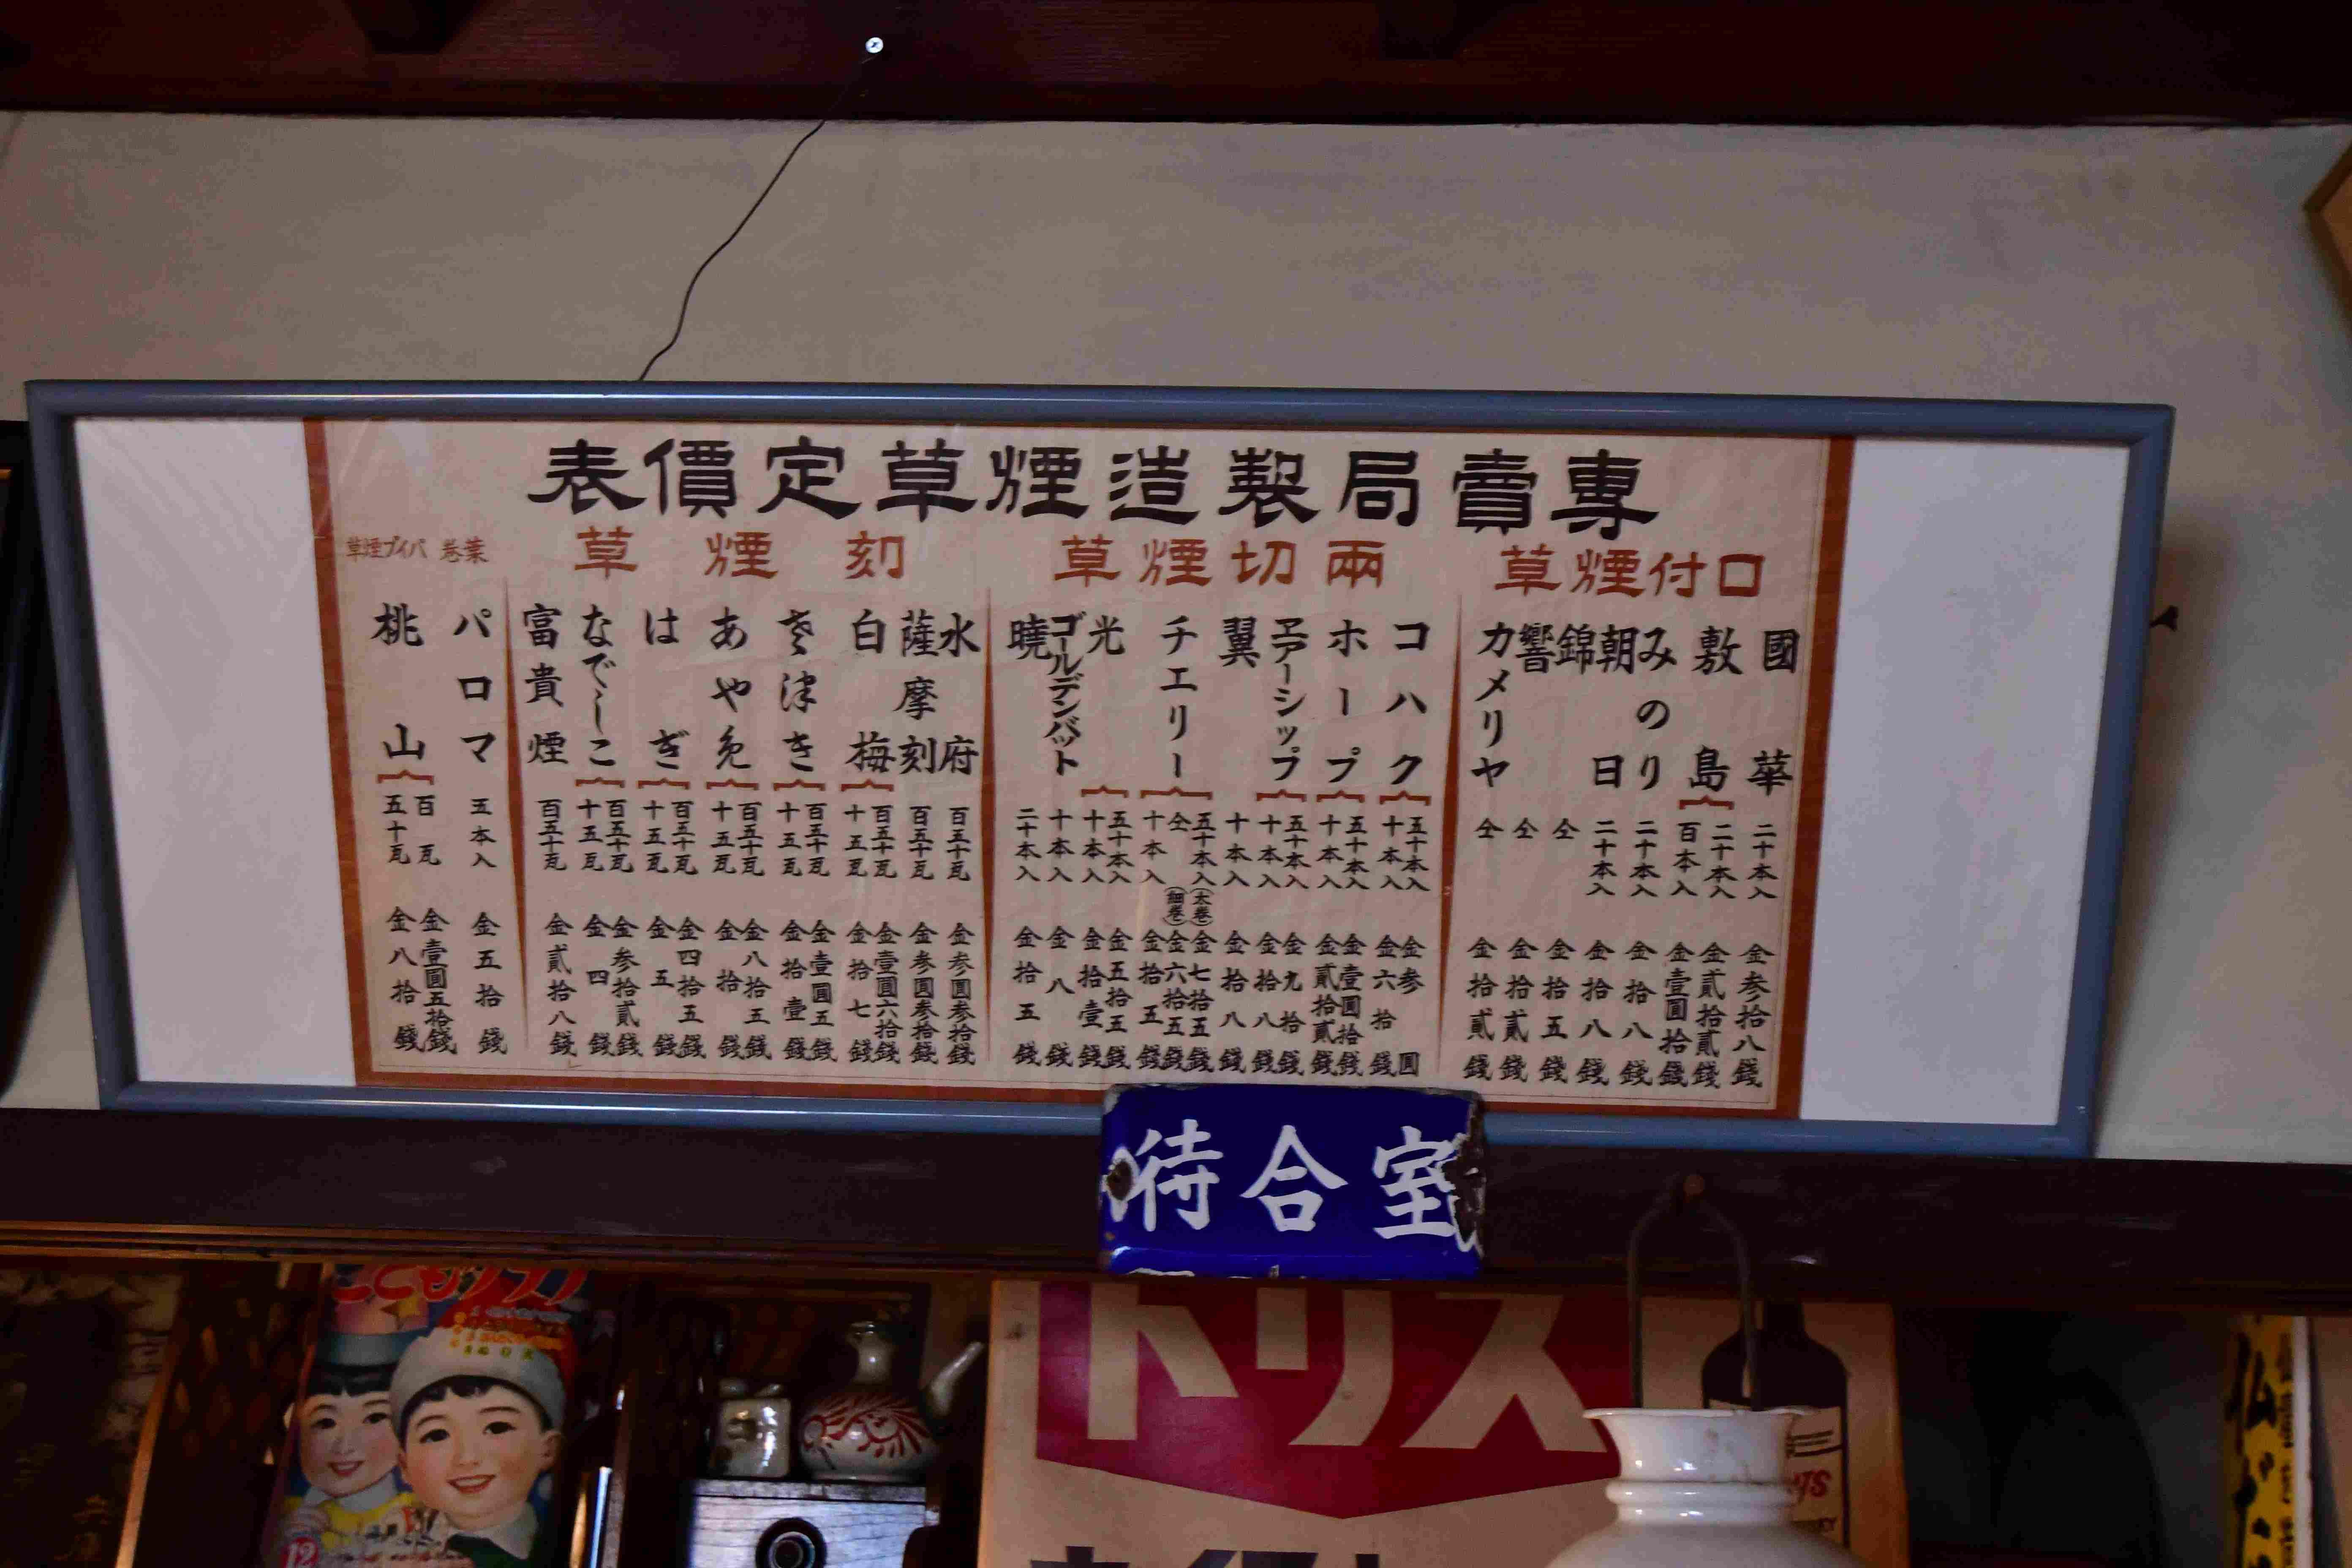 專賣局製造煙草定價表
口付煙草
國華 二十本入 金参拾八錢
敷島 二十本入 金貳拾貳錢
百本入 金壹圓拾錢
みのり 二十本入 金拾八錢
朝日 二十本入 金拾八錢
錦 仝 金拾五錢
響 仝 金拾貳錢
カメリヤ 仝 金拾貳錢
兩切煙草
コハク 五十本入 金参圓
十本入 金六拾錢
ホープ 五十本入 金壹圓拾錢
十本入 金貳拾貳錢
エアーシップ 五十本入 金九拾錢
十本入 金拾八錢
翼 十本入 金拾八錢
チエリー 五十本入(太巻) 金七拾五錢
仝(細巻) 金六拾五錢
十本入 金拾五錢
光 五十本入 金五拾五錢
十本入 金拾壹錢
ゴールデンバット 十本入 金八錢
曉 二十本入 金拾五錢
刻煙草
水府 百五十瓦 金参圓参拾錢
薩摩刻 百五十瓦 金参圓参拾錢
白梅 百五十瓦 金壹圓六拾錢
十五瓦 金拾七錢
さ津き 百五十瓦 金壹圓五錢
十五瓦 金拾壹錢
あやめ 百五十瓦 金八拾五錢
十五瓦 金拾錢
はぎ 百五十瓦 金四拾五錢
十五瓦 金五錢
なでしこ 百五十瓦 金参拾貳錢
十五瓦 金四錢
富貴煙 百五十瓦 金貳拾八錢
葉巻
パロマ 五本入 金五拾錢
パイプ煙草
桃山 百瓦 金壹圓五拾錢
五十瓦 金八拾錢
待合室
こどもクラブ
12
トリス